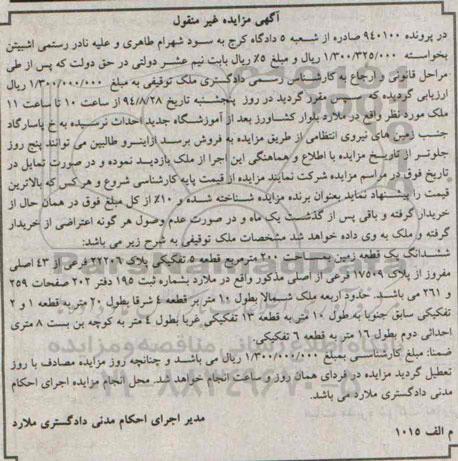 آگهی مزایده غیر منقول
در پرونده ۹۴۰۱۰۰ صادره از شعبه ۵ دادگاه کرج به سود شهرام طاهری و علیه نادر رستمی اشبیتن
بخواسته ۱/۳۰۰/۳۲۵/۰۰۰ ریال و مبلغ ۵٪ ریال بابت نیم عشر دولتی در حق دولت که پس از طی
مراحل قانونی و ارجاع به کارشناس رسمی دادگستری ملک توقیفی به مبلغ ۱/۳۰۰/۰۰۰/۰۰۰ ریال
ارزیابی گردیده که سپس مقرر گردید در روز پنجشنبه تاریخ ۹۴/۸/۲۸ از ساعت ۱۰ تا ساعت ۱۱
ملک مورد نظر واقع در ملارد بلوار کشاورز بعد از آموزشگاه جدید احداث نرسیده به خ پاسارگاد
جنب زمین های نیروی انتظامی از طریق مزایده به فروش برسد ازاینرو طالبین می توانند پنج روز
جلوتر از تاریخ مزایده با اطلاع و هماهنگی این اجرا از ملک بازدید نموده و در صورت تمایل در
تاریخ فوق در مراسم مزایده شرکت نمایند مزایده از قیمت پایه کارشناسی شروع و هر کس که بالاترین
قیمت را پیشنهاد نماید بعنوان برنده مزایده شناخته شده و ۱۰٪ از کل مبلغ فوق در همان حال از
خریدار گرفته و باقی پس از گذشت یک ماه و در صورت عدم وصول هر گونه اعتراضی از خریدار
گرفته و ملک به وی داده خواهد شد مشخصات ملک توقیفی به شرح زیر می باشد:
ششدانگ یک قطعه زمین به مساحت ۲۰۰ مترمربع قطعه ۵ تفکیکی پلاک ۲۲۲۰۶ فرعی از ۴۳ اصلی
مفروز از پلاک ۱۷۵۰۹ فرعی از اصلی مذکور واقع در ملارد بشماره ثبت ۱۹۵ دفتر ۲۰۲ صفحات ۲۵۹
و ۲۶۱ می باشد. حدود اربعه ملک شمالا بطول ۱۰ متر بر قطعه ۴ شرقا بطول ۲۰ متر به قطعه ۱ و ۲
تفکیکی سابق جنوبا به طول ۱۰ متر به قطعه ۱۲ تفکیکی غربا بطول ۴ متر به کوچه بن بست ۸ متری
احداثی دوم بطول ۱۶ متر به قطعه ۶ تفکیکی
ضمنا: مبلغ کارشناسی بمبلغ ۱/۳۰۰/۰۰۰/۰۰۰ ریال می باشد و چنانچه روز مزایده مصادف با روز
تعطیل گردید مزایده در فردای همان روز و ساعت انجام خواهد شد. محل انجام مزایده اجرای احکام
مدنی دادگستری ملارد می باشد.
مدیر اجرای احکام مدنی دادگستری ملارد
م الف ۱۰۱۵